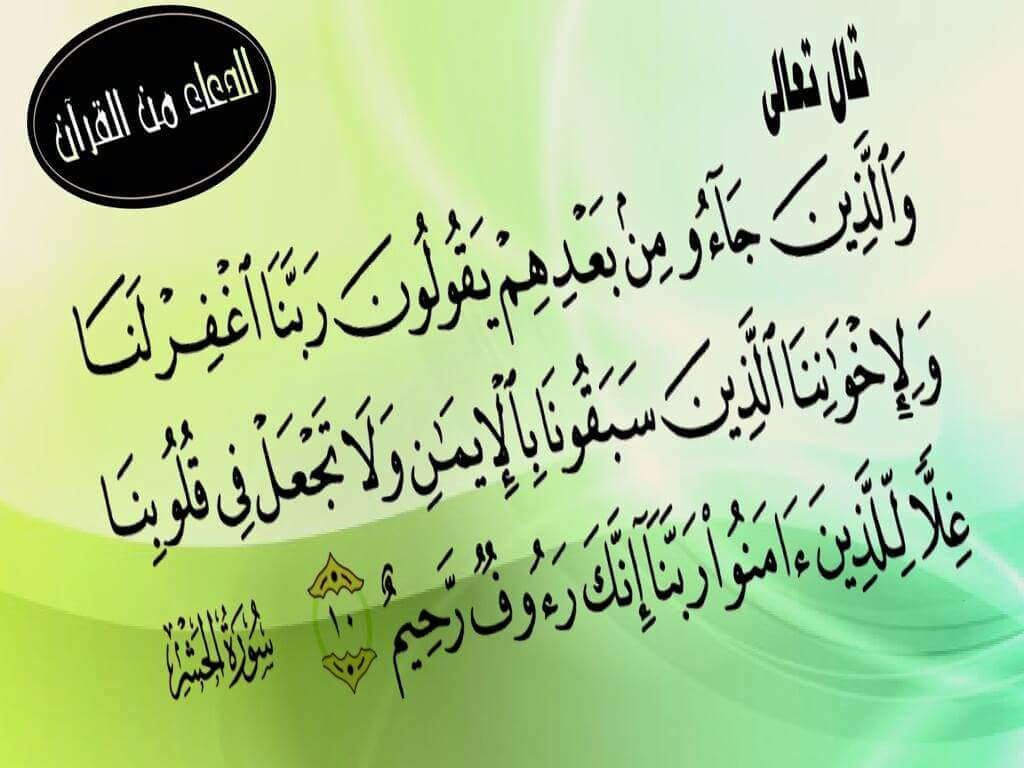 الدعاء من القرآن
قال تعالى
وَٱلَّذِينَ جَآءُو مِنۢ بَعْدِهِمْ يَقُولُونَ رَبَّنَا ٱغْفِرْ لَنَا
وَلِإِخْوَٰنِنَا ٱلَّذِينَ سَبَقُونَا بِٱلْإِيمَٰنِ وَلَا تَجْعَلْ فِى قُلُوبِنَا
غِلًّا لِّلَّذِينَ ءَامَنُوا۟ رَبَّنَآ إِنَّكَ رَءُوفٌ رَّحِيمٌ ١٠
سُورَةُ الحَشْرِ